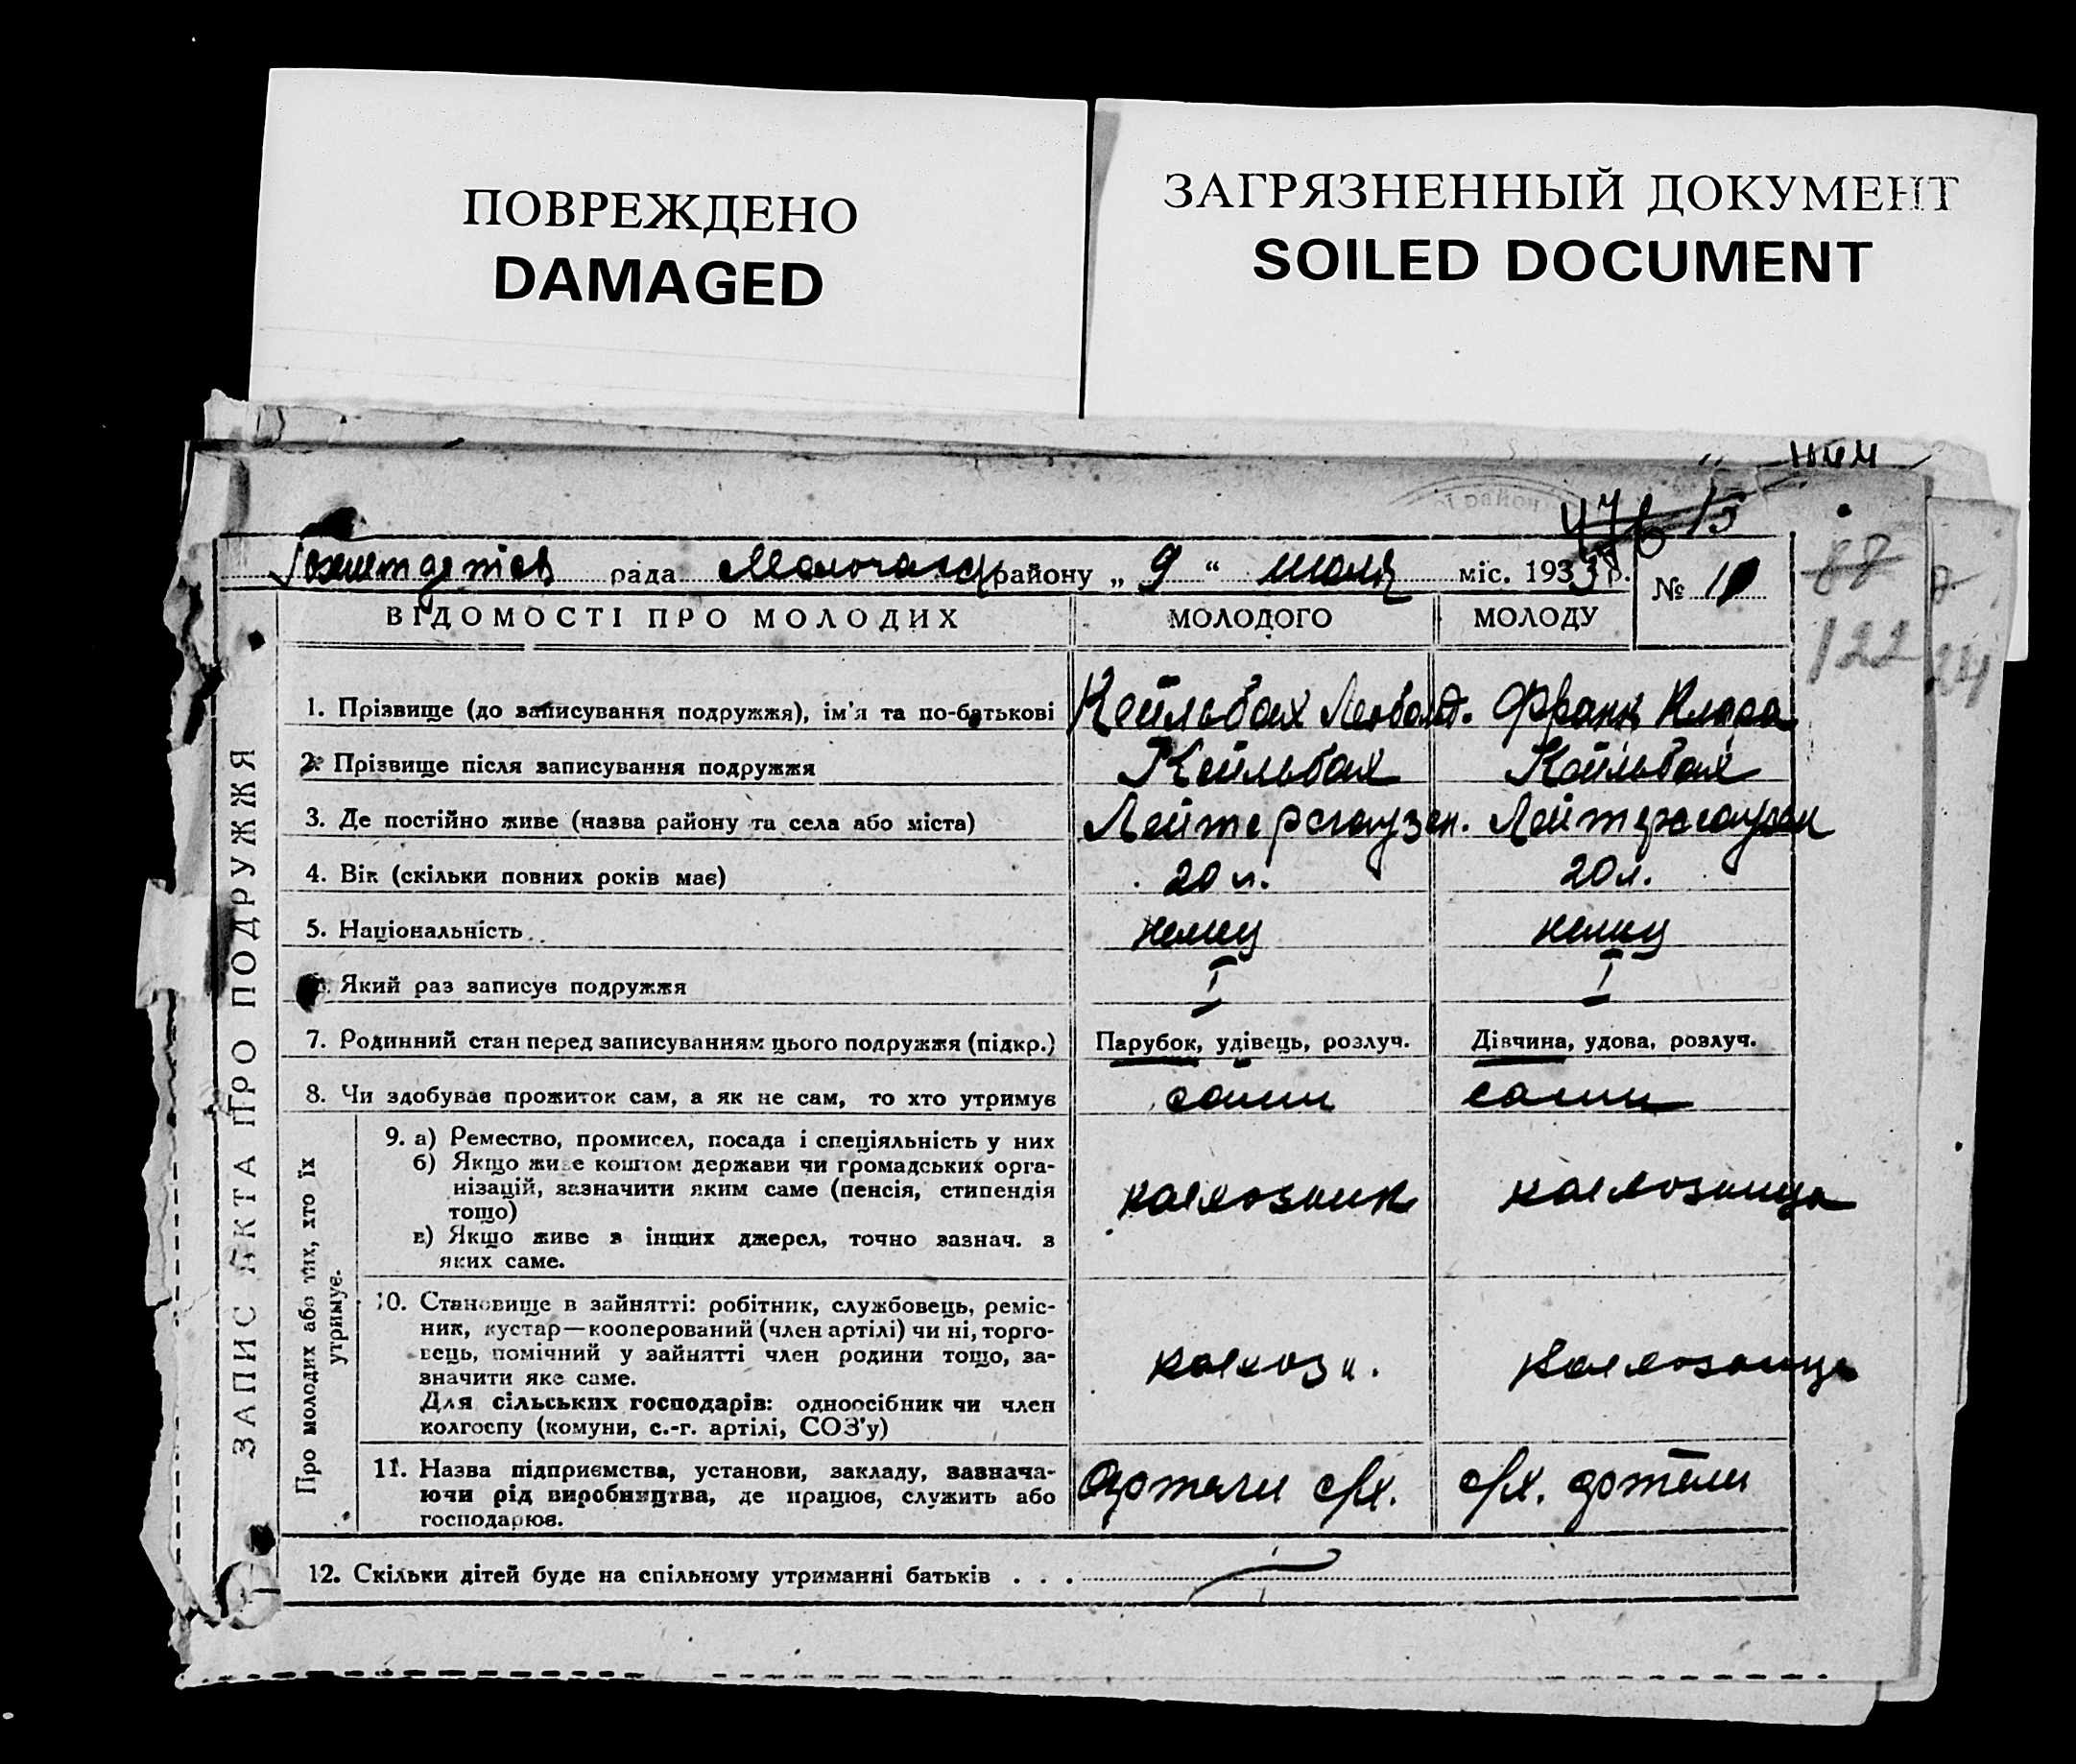 ПОВРЕЖДЕНО
DAMAGED
ЗАГРЯЗНЕННЫЙ ДОКУМЕНТ
SOILED DOCUMENT
476 15
рада Молочанск району „ 9 “ июля міс. 193 р. №
88
122
24
ВІДОМОСТІ ПРО МОЛОДИХ МОЛОДОГО МОЛОДУ
ЗАПИС АКТА ПРО ПОДРУЖЖЯ
1. Прізвище (до записування подружжя), ім'я та по-батькові Кейльбах Леобольд. Франк Клара
2. Прізвище після записування подружжя Кейльбах Кейльбах
3. Де постійно живе (назва району та села або міста) Лейтерсгаузен. Лейтерсгаузен
4. Вік (скільки повних років має) 20 л. 20 л.
5. Національність немец немец
6. Який раз записує подружжя I I
7. Родинний стан перед записуванням цього подружжя (підкр.) Парубок, удівець, розлуч. Дівчина, удова, розлуч.
8. Чи здобуває прожиток сам, а як не сам, то хто утримує сами сами
Про молодих або тих, хто їх
утримує.
9. а) Ремество, промисел, посада і спеціяльність у них
б) Якщо живе коштом держави чи громадських орга-
нізацій, зазначити яким саме (пенсія, стипендія
тощо)
в) Якщо живе з інших джерел, точно зазнач. з
яких саме.
колхозник колхозница
10. Становище в зайнятті: робітник, службовець, реміс-
ник, кустар—кооперований (член артілі) чи ні, торго-
вець, помічний у зайнятті член родини тощо, за-
значити яке саме.
Для сільських господарів: одноосібник чи член
колгоспу (комуни, с.-г. артілі, СОЗ'у)
колхозн. колхозница
11. Назва підприємства, установи, закладу, зазнача-
ючи рід виробництва, де працює, служить або
господарює.
Артели с/х. с/х. артели
12. Скільки дітей буде на спільному утриманні батьків . . . —